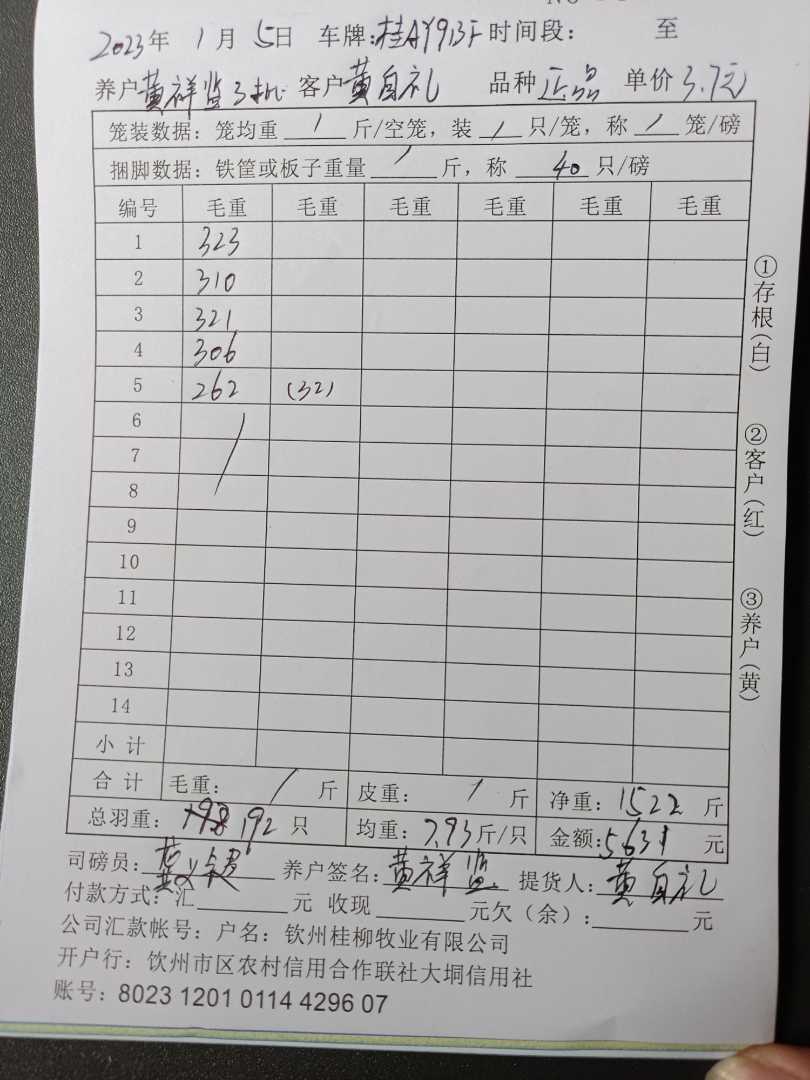 2023年 1月 5日 车牌:桂AY913F 时间段: 至
养户 黄祥监 客户 黄自礼 品种 正品 单价 3.7元
笼装数据: 笼均重 / 斤/空笼, 装 / 只/笼, 称 / 笼/磅
捆脚数据: 铁筐或板子重量 / 斤, 称 40 只/磅
编号 毛重 毛重 毛重 毛重 毛重 毛重
1 323
2 310
3 321
4 306
5 262 (32)
6
7
8
9
10
11
12
13
14
小计
合计 毛重: / 斤 皮重: / 斤 净重: 1522 斤
总羽重: 192 只 均重: 7.93斤/只 金额: 5631 元
司磅员: 养户签名: 黄祥监 提货人: 黄自礼
付款方式: 汇 元 收现 元欠(余): 元
公司汇款帐号: 户名: 钦州桂柳牧业有限公司
开户行: 钦州市区农村信用合作联社大垌信用社
账号: 8023 1201 0114 4296 07
①存根(白)
②客户(红)
③养户(黄)